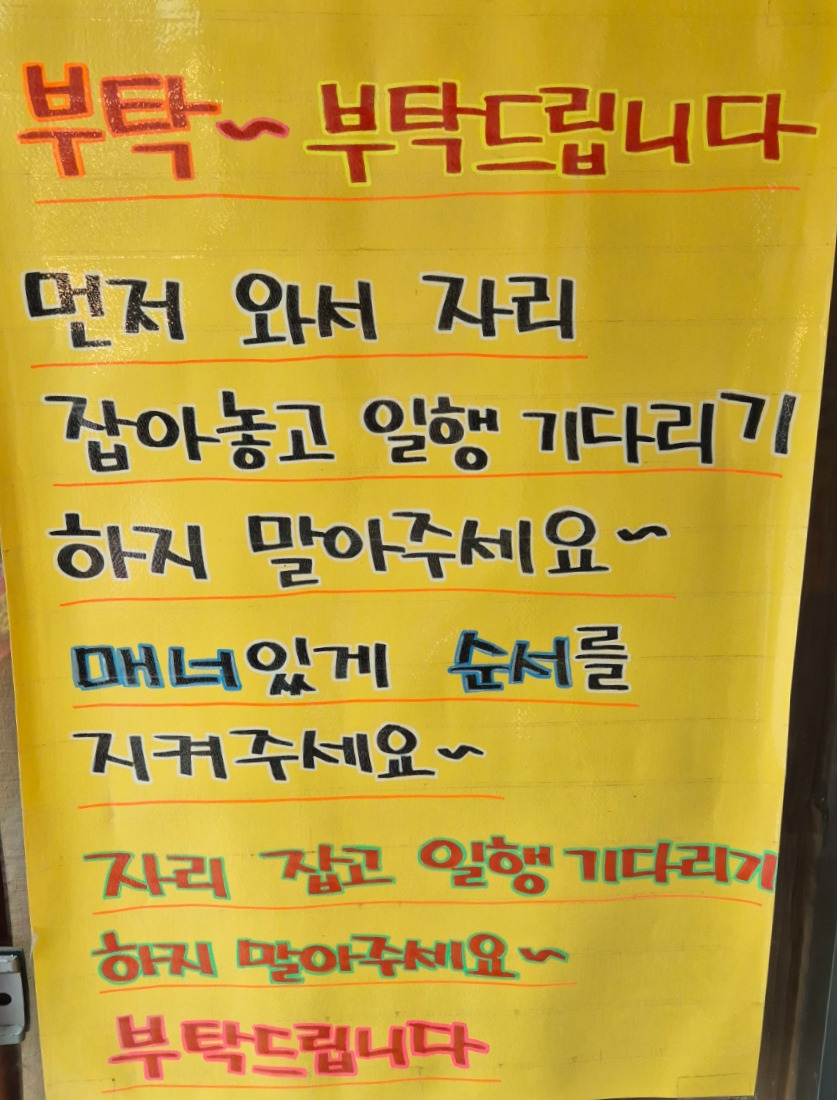 부탁~ 부탁드립니다
먼저 와서 자리
잡아놓고 일행 기다리기
하지 말아주세요~
매너있게 순서를
지켜주세요~
자리 잡고 일행 기다리기
하지 말아주세요~
부탁드립니다